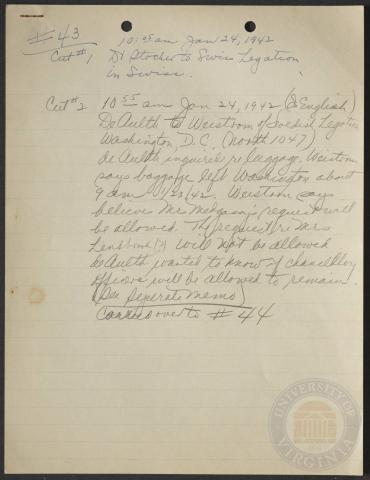 #43
10:05 am Jan 24, 1942
Cut #1 Dr Stocher to Swiss Legation
in Swiss.
Cut #2 10 55 am Jan 24, 1942 (English)
De Aulth to Weistrom of Swedish Legation
Washington, D.C. (North 1047)
de Aulth inquired re luggage. Weistrom
says baggage left Washington about
9 am 1/23/42. Weistrom says
believe Mrs request will
be allowed. The request re Mrs
(?) will not be allowed
de Aulth wanted to know if chancellory
officers will be allowed to remain.
(See Seperate Memo)
Carries over to #44
UNIVERSITY OF VIRGINIA
1819